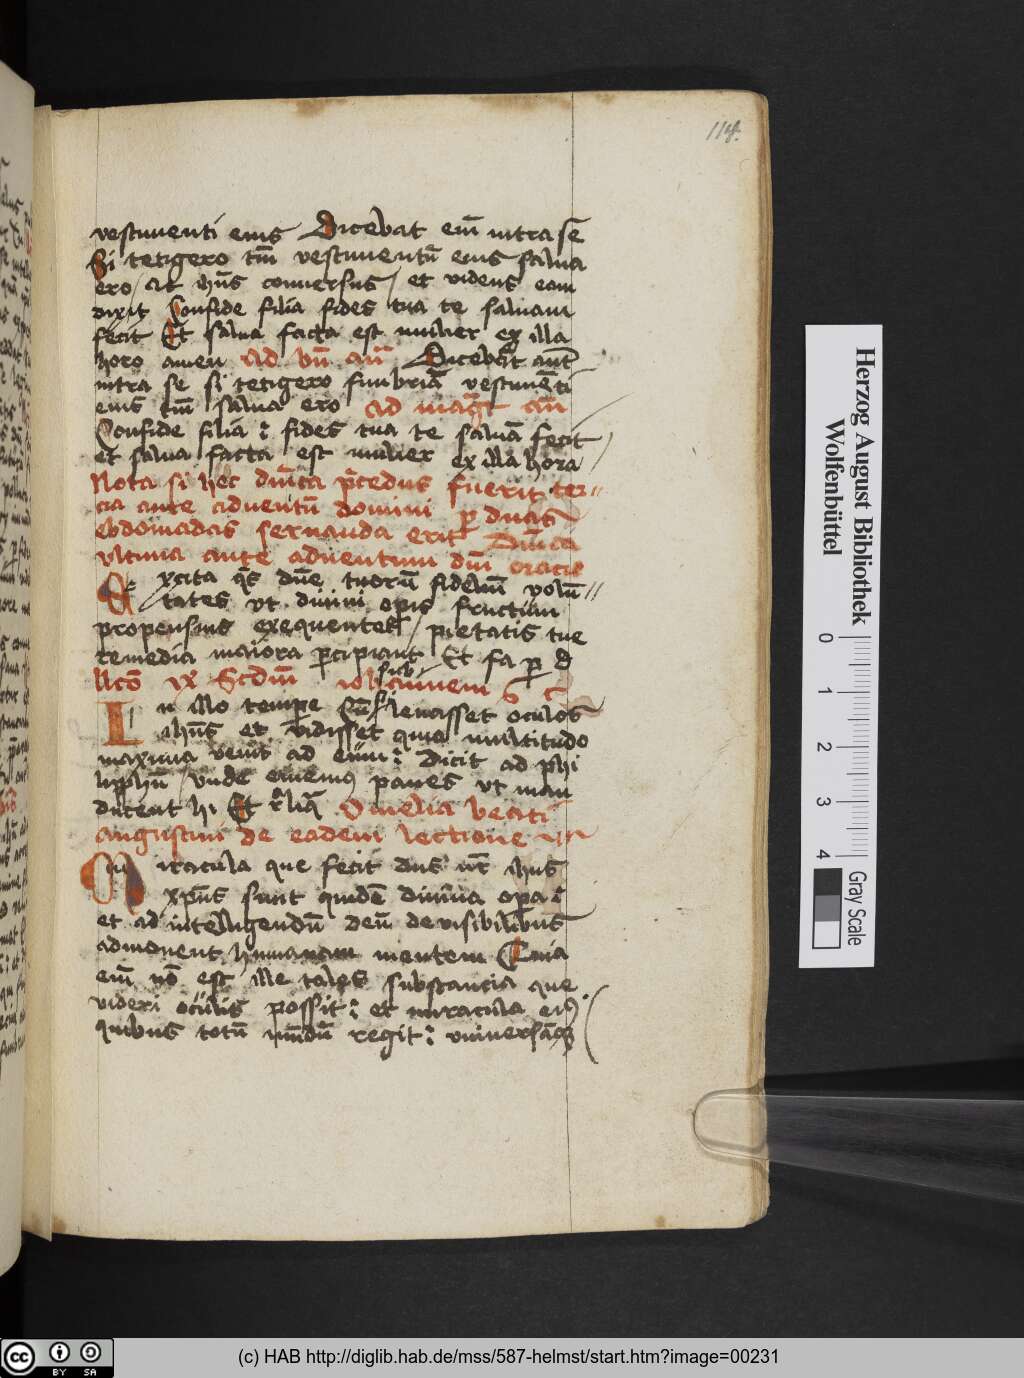 114.
vestimenti eius Dicebat em̄ intra se
Si tetigero tm̄ vestimentū eius salua
ero / At ihūs conuersus / et videns eam
dixit Confide filia fides tua te saluam
fecit Et salua facta est mulier ex illa
hora amen Ad bn̄ an̄ Dicebat aut̄
intra se si tetigero fimbriā vestimēti
eius tm̄ salua ero ad maḡt an̄
Confide filia : fides tua te saluā fecit
et salua facta est mulier ex illa hora
Nota si hec dnīca p̄cedens fuerit ter=
cia ante aduentū domini per duas
ebdomadas seruanda erit Dnīca
vltima ante aduentum dnī oracio
Excita qs dne tuorū fidelium volū=
tates vt diuini opis fructum
propensius exequentes / pietatis tue
remedia maiora p̄cipiant Et fa p d
llco ix Scdm iohannem
In illo tempe Cū subleuasset oculos
ihūs et vidisset quia multitudo
maxima venit ad eum : Dicit ad phi
lipphū / vnde ememus panes vt man
ducent hi Et rliā Omelia beati
augustini de eadem lectione
Miracula que fecit dns nr̄ ihūs
xpūs sunt quidē diuina opa :
et ad intelligendū deū de visibilibus
admonent humanam mentem Quia
em̄ nō est ille talis substancia que
videri oculis possit : et miracula eius
quibus totū mūdū regit : vniuersāqz
Herzog August Bibliothek
Wolfenbüttel
0 1 2 3 4
Gray Scale
cc BY SA
(c) HAB http://diglib.hab.de/mss/587-helmst/start.htm?image=00231